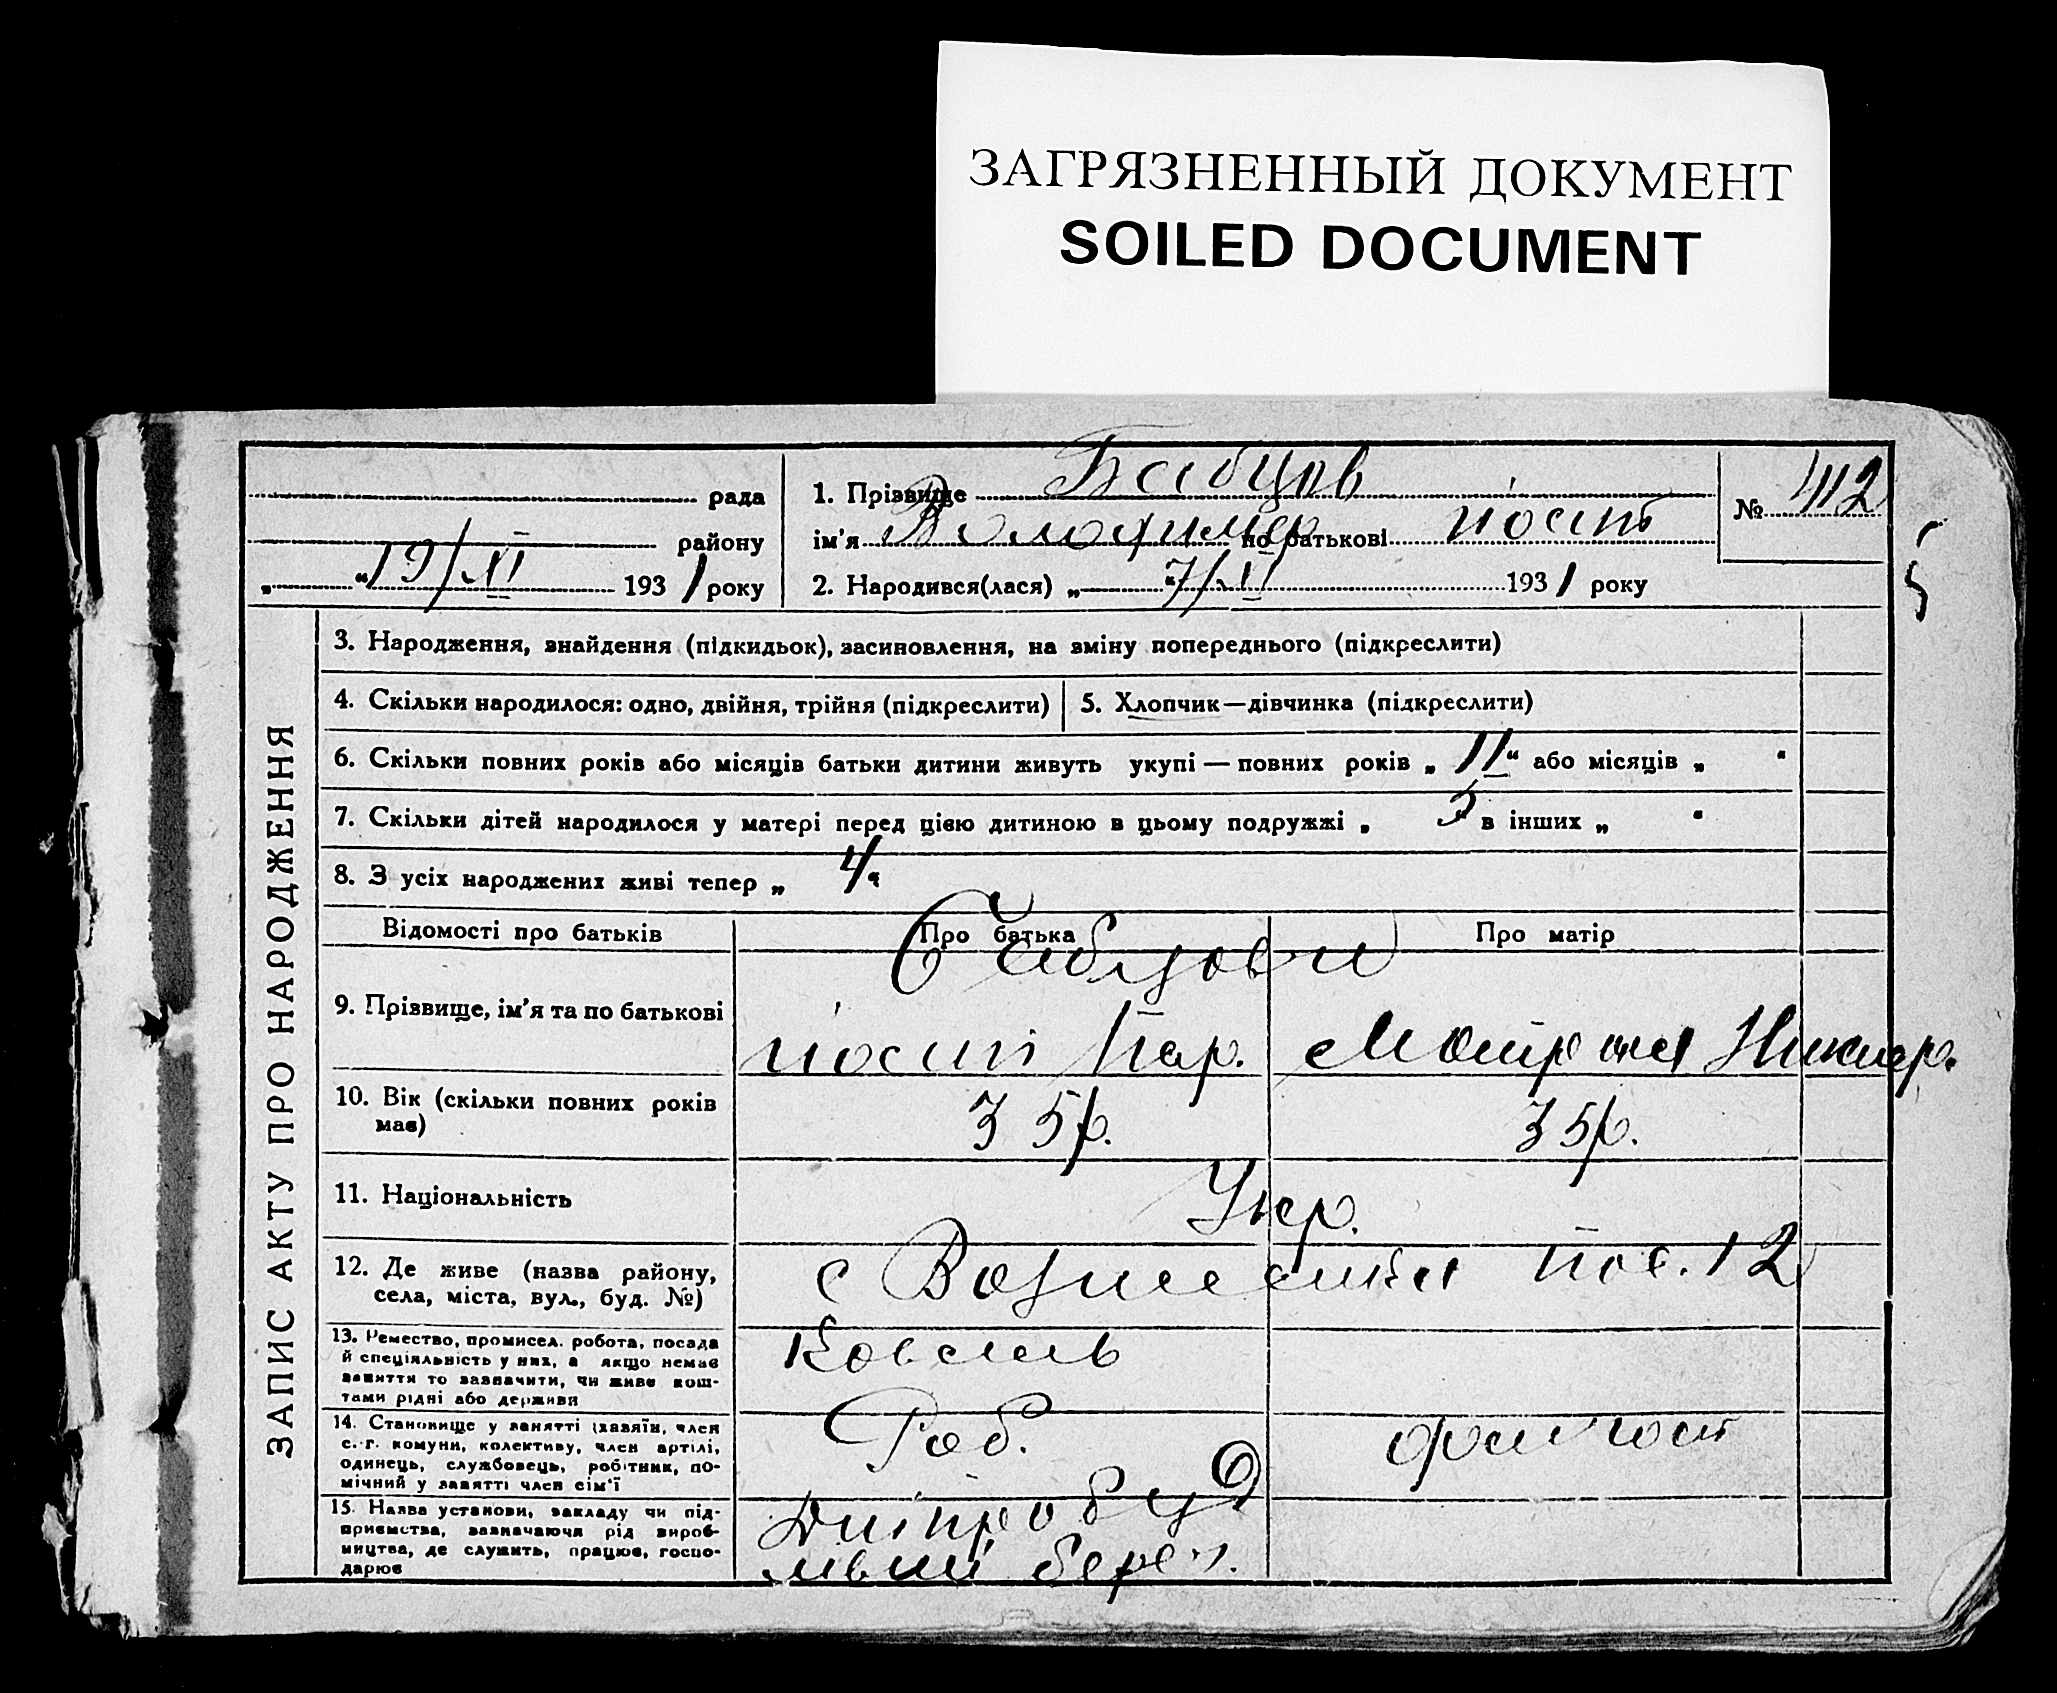 ЗАГРЯЗНЕННЫЙ ДОКУМЕНТ
SOILED DOCUMENT
рада
району
„ “ 19/XI 1931 року
1. Прізвище Бабцов
ім'я Володимер по батькові Йосип
2. Народився(лася) „ “ 7/XI 1931 року
№ 412
ЗАПИС АКТУ ПРО НАРОДЖЕННЯ
3. Народження, знайдення (підкидьок), засиновлення, на зміну попереднього (підкреслити)
4. Скільки народилося: одно, двійня, трійня (підкреслити)
5. Хлопчик—дівчинка (підкреслити)
6. Скільки повних років або місяців батьки дитини живуть укупі — повних років „ 11 “ або місяців „ “
7. Скільки дітей народилося у матері перед цією дитиною в цьому подружжі „ 5 в інших „ “
8. З усіх народжених живі тепер „ 4 “
Відомості про батьків
Про батька
Про матір
9. Прізвище, ім'я та по батькові
Бабцови
Йосип Пар.
Мотрона
10. Вік (скільки повних років
має)
35 р.
35 р.
11. Національність
Укр.
12. Де живе (назва району,
села, міста, вул., буд. №)
с Вознесенка пос. 12
13. Ремество, промисел. робота, посада
й спеціяльність у них, а якщо немає
заняття то зазначити, чи живе кош-
тами рідні або держави
Коваль
14. Становище у занятті (хазяїн, член
с.-г. комуни, колективу, член артілі,
одинець, службовець, робітник, по-
мічний у занятті член сім'ї
Роб.
15. Назва установи, закладу чи під-
приємства, зазначаючи рід вироб-
ництва, де служить, працює, госпо-
дарює
Дніпробуд
лівий берег.